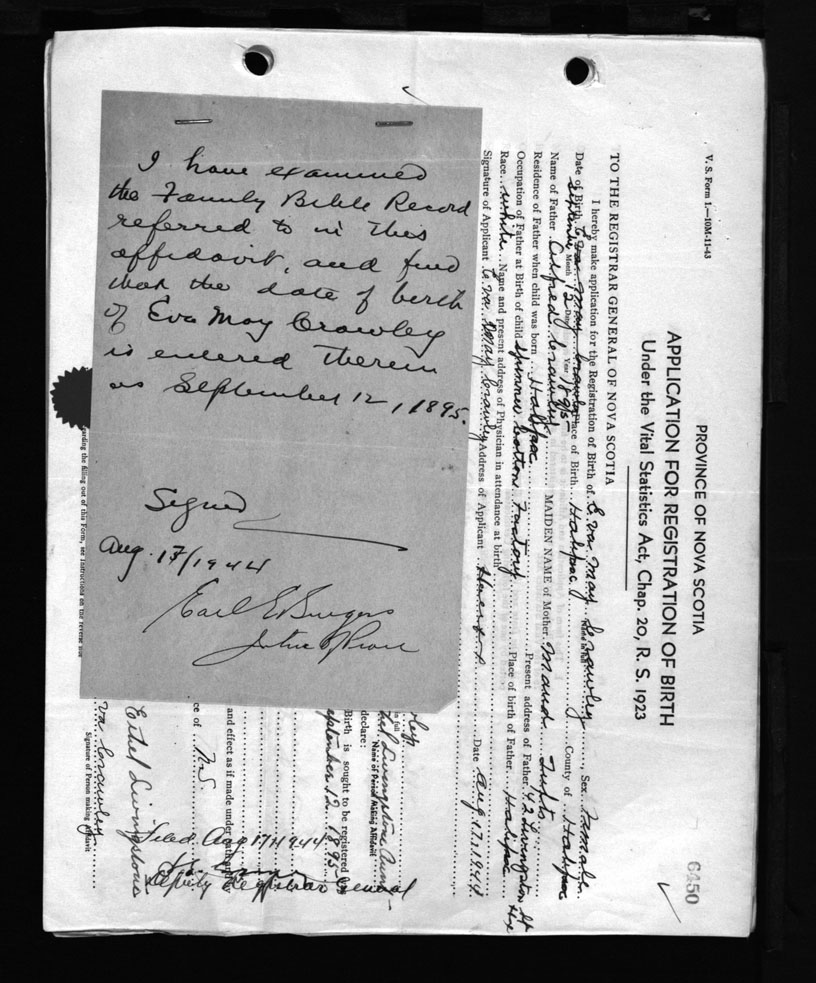 I have examined
the Family Bible Record
referred to in this
affidavit, and find
that the date of birth
of Eva May Crawley
is entered therein
as September 12, 1895.
Signed
Aug. 17/1944
Earl E Burgess
V. S. Form 1.—10M-11-43
6450
PROVINCE OF NOVA SCOTIA
APPLICATION FOR REGISTRATION OF BIRTH
Under the Vital Statistics Act, Chap. 20, R. S. 1923
TO THE REGISTRAR GENERAL OF NOVA SCOTIA
I hereby make application for the Registration of Birth of Eva May Crawley, Sex Female
Date of Birth September 12 1895 Place of Birth Halifax County of Halifax
Name of Father Alfred Crawley MAIDEN NAME of Mother Maud Tufts
Residence of Father when child was born Halifax Present address of Father 42 Livingston St
Occupation of Father at Birth of child Spinner Cotton Factory Place of birth of Father Halifax
Race White Name and present address of Physician in attendance at birth
Signature of Applicant Eva May Crawley Address of Applicant Date Aug. 17, 1944
Name of Person Making Affidavit
declare:
Birth is sought to be registered
September 12 1895
and effect as if made under oath
N.S.
Ethel Livingstone
Filed Aug 17 1944
Deputy Registrar General
Eva Crawley
Signature of Person making Affidavit
regarding the filling out of this Form, see instructions on the reverse side